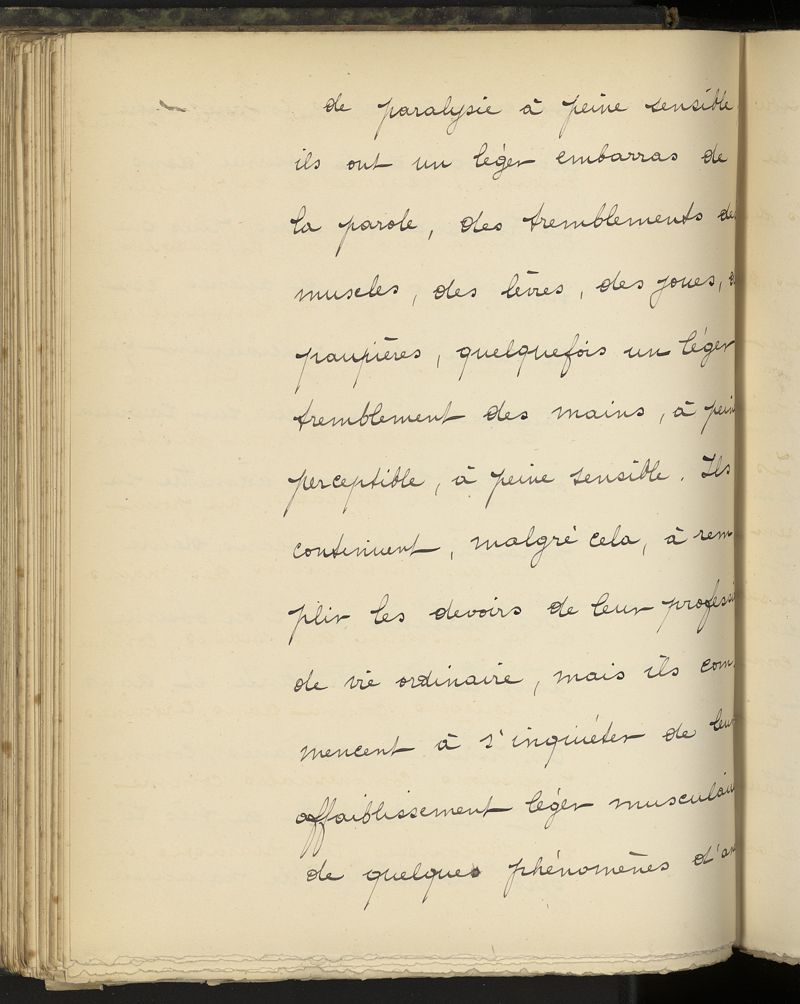 de paralysie à peine sensible
ils ont un léger embarras de
la parole, des tremblements de
muscles, des lèvres, des joues,
paupières, quelquefois un léger
tremblement des mains, à pein
perceptible, à peine sensible. Ils
continuent, malgré cela, à rem
plir les devoirs de leur professi
de vie ordinaire, mais ils com
mencent à s'inquiéter de leur
affaiblissement léger musculair
de quelques phénomènes d'